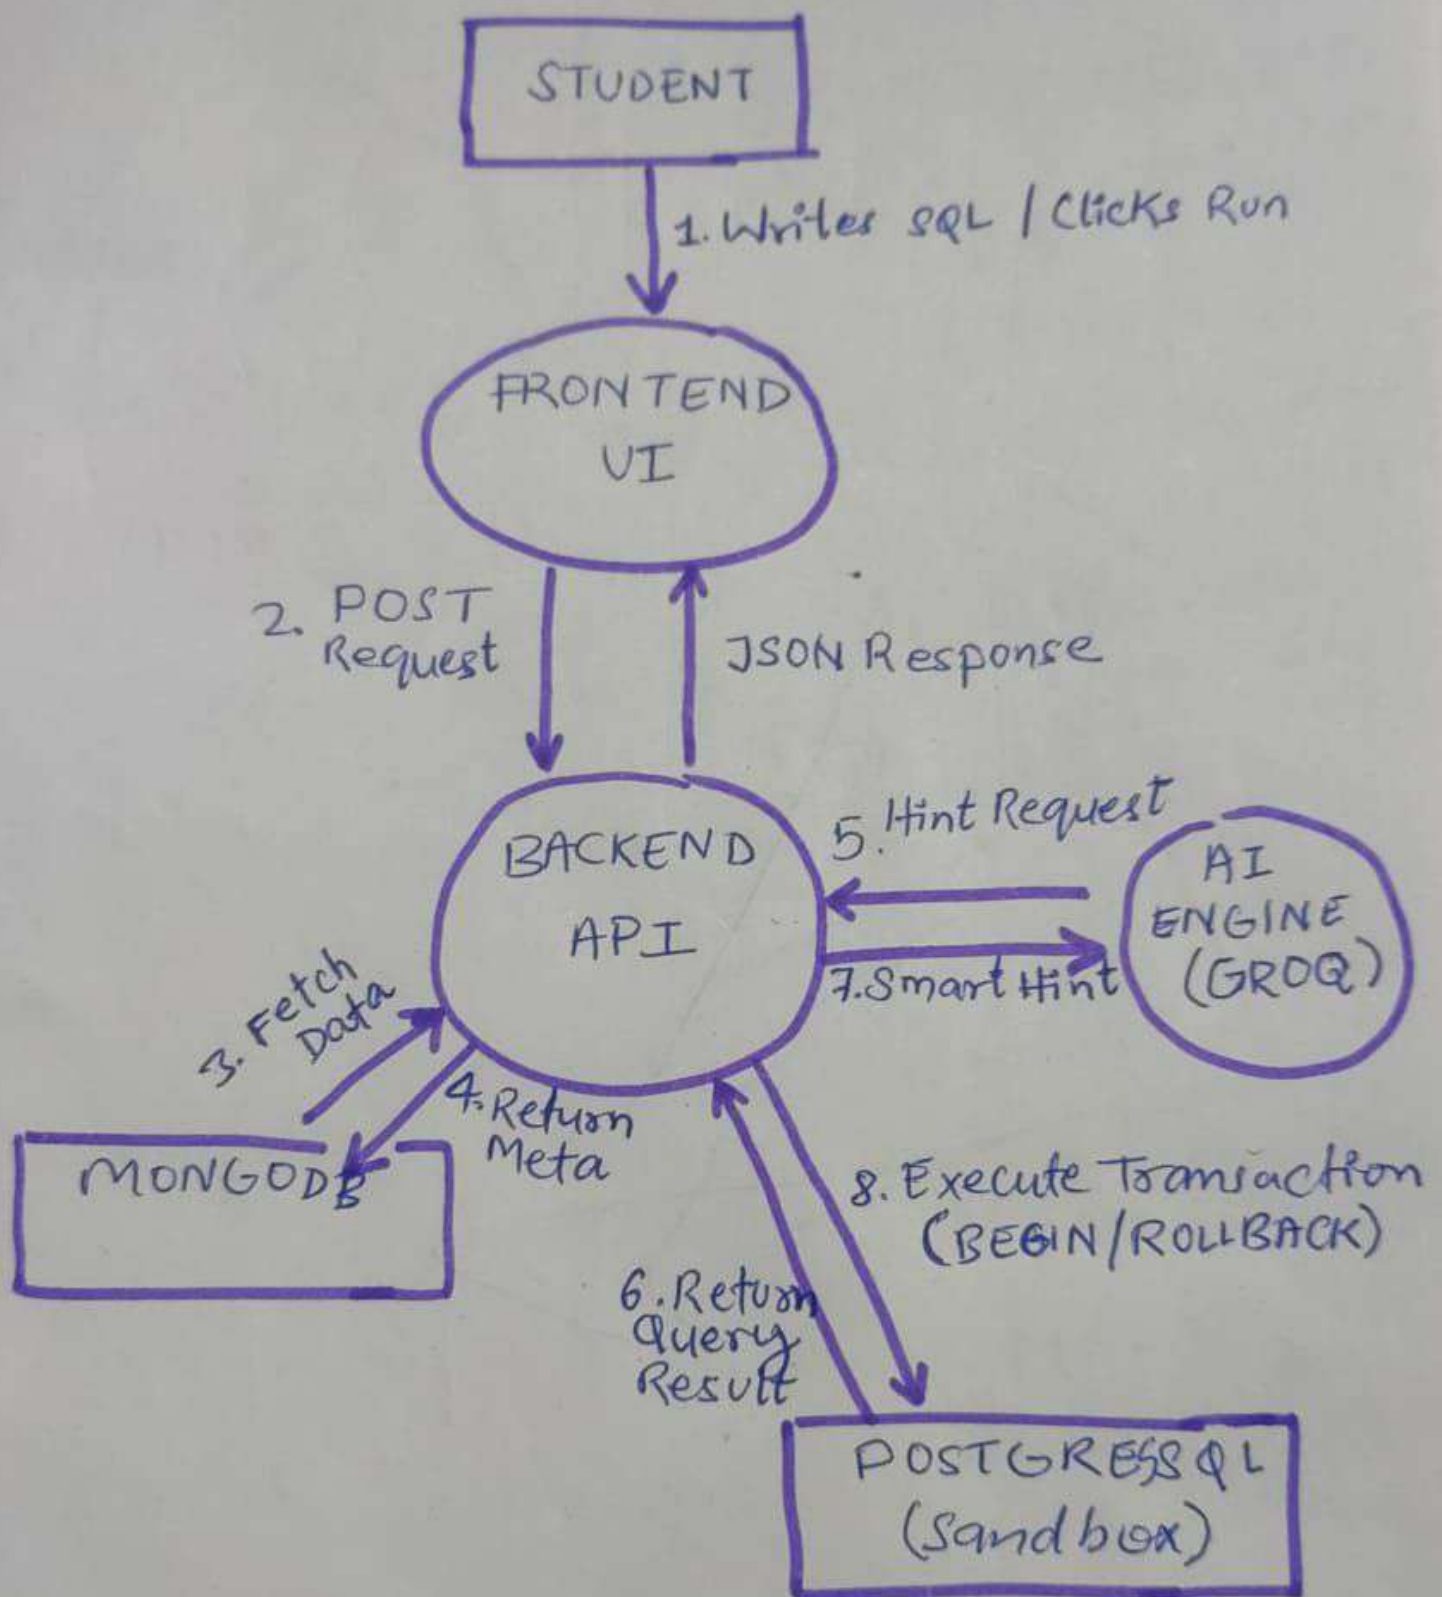 STUDENT
1. Writes SQL / Clicks Run
FRONTEND
UI
2. POST
Request
JSON Response
BACKEND
API
5. Hint Request
AI
ENGINE
(GROQ)
7. Smart Hint
3. Fetch
Data
4. Return
Meta
MONGODB
8. Execute Transaction
(BEGIN/ROLLBACK)
6. Return
Query
Result
POSTGRESSQL
(Sandbox)